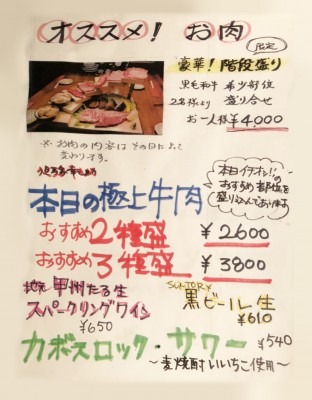 オススメ! お肉
限定
豪華! 階段盛り
黒毛和牛 希少部位
2名様より 盛り合せ
お一人様¥4,000
※お肉の内容はその日によって
変わります。
本日の極上牛肉
本日イチオシ!!の
おすすめ部位を
盛り込んでおります
おすすめ2種盛 ¥2600
おすすめ3種盛 ¥3800
地元 甲州たる生
スパークリングワイン
¥650
SUNTORY
黒ビール生
¥610
カボスロック・サワー ¥540
～麦焼酎いいちこ使用～